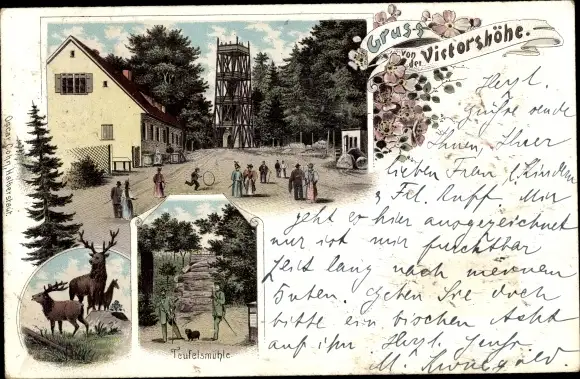 Gruss
von der Victorshöhe.
Herzl.
Grüsse sende
Ihnen, Ihrer
lieben Frau, Kindern
Frl. Ruff. Mir
geht es hier ausgezeichnet
nur ist mir furchtbar
Zeit lang nach meinem
Guten. Geben Sie doch
bitte ein bischen Acht
auf ihn Herzl.
M.
Teufelsmühle
Oscar Cohn, Halberstadt.